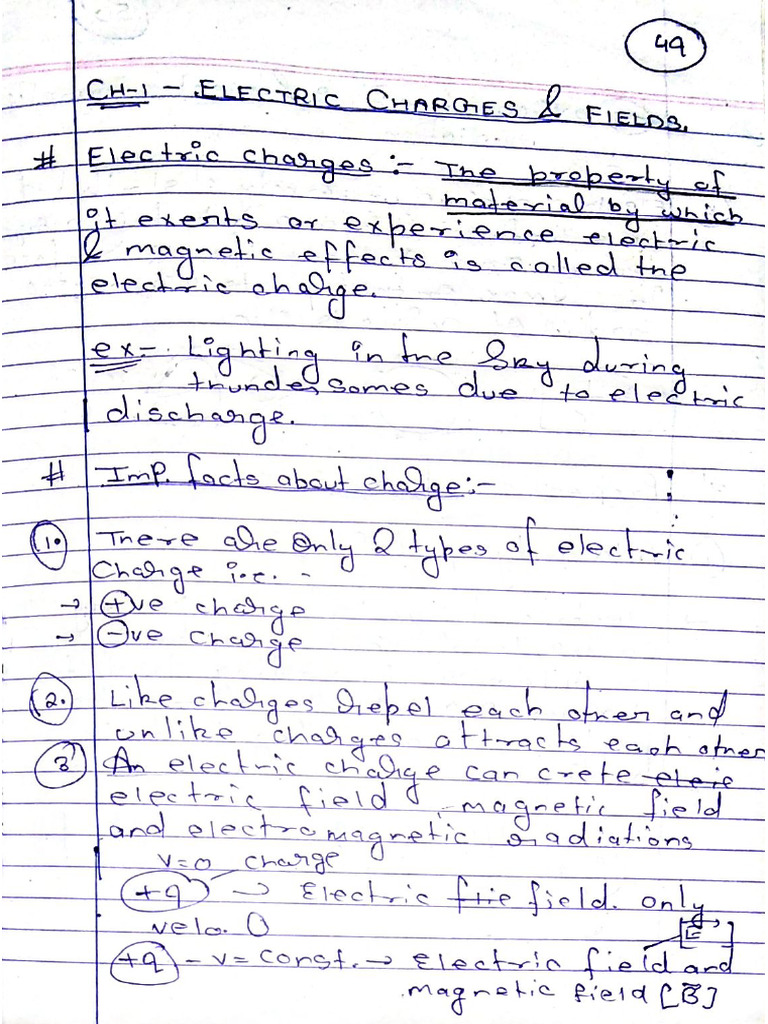 49
CH-1 - ELECTRIC CHARGES & FIELDS.
# Electric charges :- The property of
material by which
it exerts or experience electric
& magnetic effects is called the
electric charge.
ex- Lighting in the Sky during
thundersomes due to electric
discharge.
# Imp. facts about charge:-
1. There are only 2 types of electric
Charge i.e. -
→ +ve charge
→ -ve charge
2. Like charges repel each other and
unlike charges attracts each other
3 An electric charge can crete eleic
electric field, magnetic field
and electromagnetic radiations
v=0 charge
+q → Electric frie field. only
velo. 0
[E]
+q - v= const. → Electric field and
magnetic field [B]